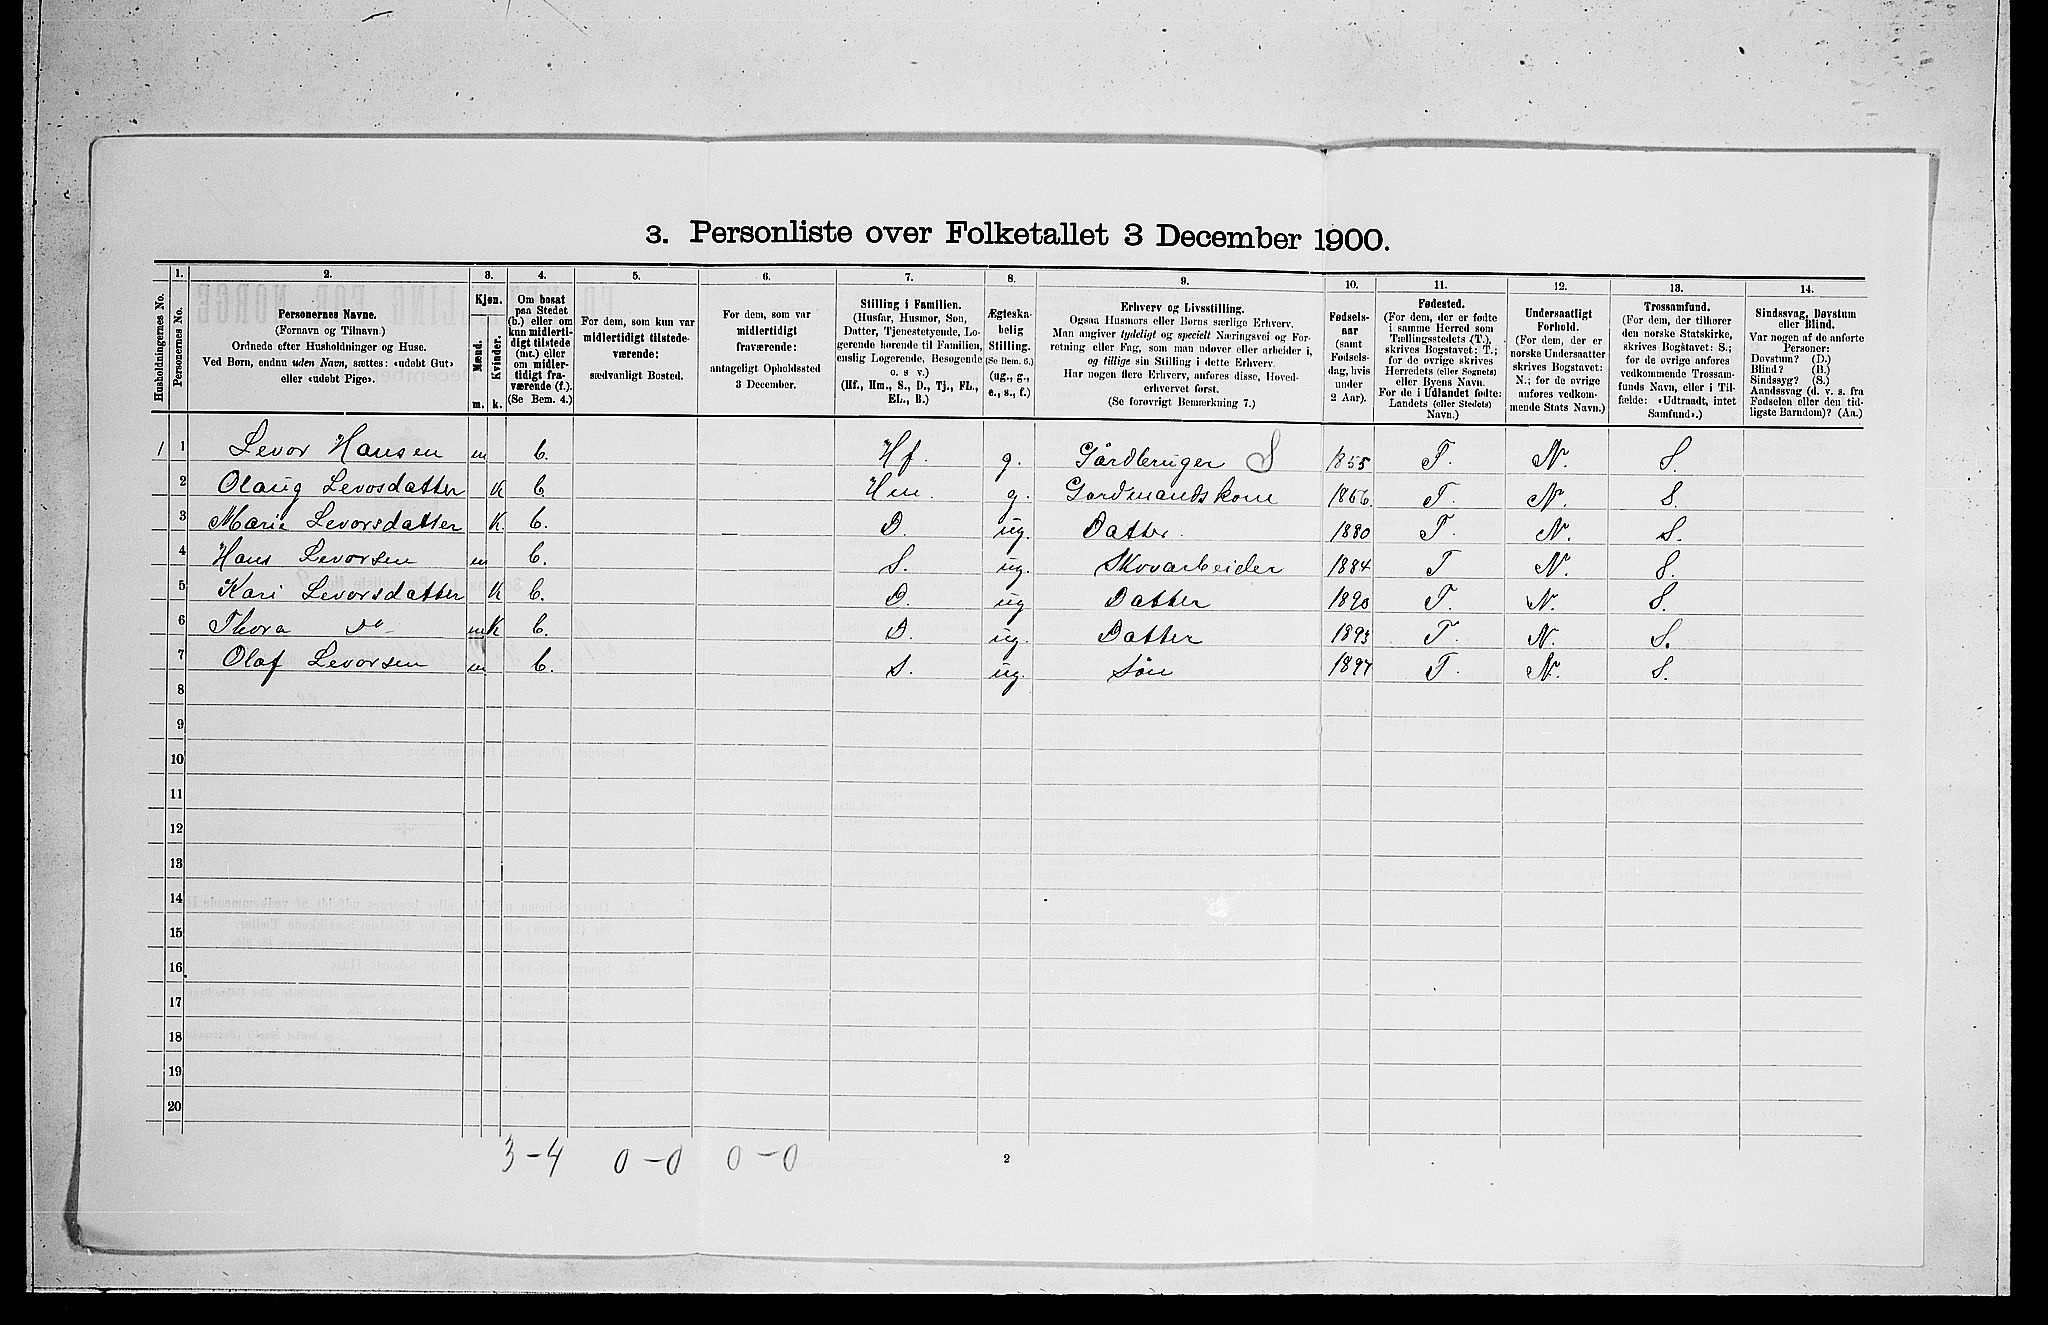 3. Personliste over Folketallet 3 December 1900.
Husholdningernes No.
1.
Personernes No.
2.
Personernes Navne.
(Fornavn og Tilnavn.)
Ordnede efter Husholdninger og Huse.
Ved Børn, endnu uden Navn, sættes: «udøbt Gut»
eller «udøbt Pige».
3.
Kjøn.
Mænd.
Kvinder.
m. k.
4.
Om bosat
paa Stedet
(b.) eller om
kun midlerti-
digt tilstede
(mt.) eller
om midler-
tidigt fra-
værende (f.).
(Se Bem. 4.)
5.
For dem, som kun var
midlertidigt tilstede-
værende:
sædvanligt Bosted.
6.
For dem, som var
midlertidigt
fraværende:
antageligt Opholdssted
3 December.
7.
Stilling i Familien.
(Husfar, Husmor, Søn,
Datter, Tjenestetyende, Lo-
gerende hørende til Familien,
enslig Logerende, Besøgende
o. s v.)
(Hf., Hm., S., D., Tj., FL.,
EL., B.)
8.
Ægteska-
belig
Stilling.
(Se Bem. 6.)
(ug., g.,
e., s., f.)
9.
Erhverv og Livsstilling.
Ogsaa Husmors eller Børns særlige Erhverv.
Man angiver tydeligt og specielt Næringsvei og For-
retning eller Fag, som man udøver eller arbeider i,
og tillige sin Stilling i dette Erhverv.
Har nogen flere Erhverv, anføres disse, Hoved-
erhvervet først.
(Se forøvrigt Bemærkning 7.)
10.
Fødsels-
aar
(samt
Fødsels-
dag, hvis
under
2 Aar).
11.
Fødested.
(For dem, der er fødte
i samme Herred som
Tællingsstedets (T.),
skrives Bogstavet: T.;
for de øvrige skrives
Herredets (eller Sognets)
eller Byens Navn.
For de i Udlandet fødte:
Landets (eller Stedets)
Navn.)
12.
Undersaatligt
Forhold.
(For dem, der er
norske Undersaatter
skrives Bogstavet:
N.; for de øvrige
anføres vedkom-
mende Stats Navn.)
13.
Trossamfund.
(For dem, der tilhører
den norske Statskirke,
skrives Bogstavet: S.;
for de øvrige anføres
vedkommende Trossam-
funds Navn, eller i Til-
fælde: «Udtraadt, intet
Samfund».)
14.
Sindssvag, Døvstum
eller Blind.
Var nogen af de anførte
Personer:
Døvstum? (D.)
Blind? (B.)
Sindssyg? (S.)
Aandssvag (d. v. s. fra
Fødselen eller den tid-
ligste Barndom)? (Aa.)
1 1 Levor Hansen m b. Hf. g. Gårdbruger S 1855 T. N. S.
2 Olaug Levosdatter K b. Hm. g. Gardmandskone 1866 T. N. S.
3 Marie Levorsdatter K. b. D. ug. Datter. 1880 T. N. S.
4 Hans Levorsen m b. S. ug. Skovarbeider 1884 T N. S.
5 Kari Levorsdatter K b. D. ug Datter 1890 T. N. S.
6 Thora Do m K b. D. ug. Datter 1893 T. N. S.
7 Olaf Levorsen m b. S. ug. Søn 1897 T. N. S.
8
9
10
11
12
13
14
15
16
17
18
19
20
3-4 0-0 0-0
2